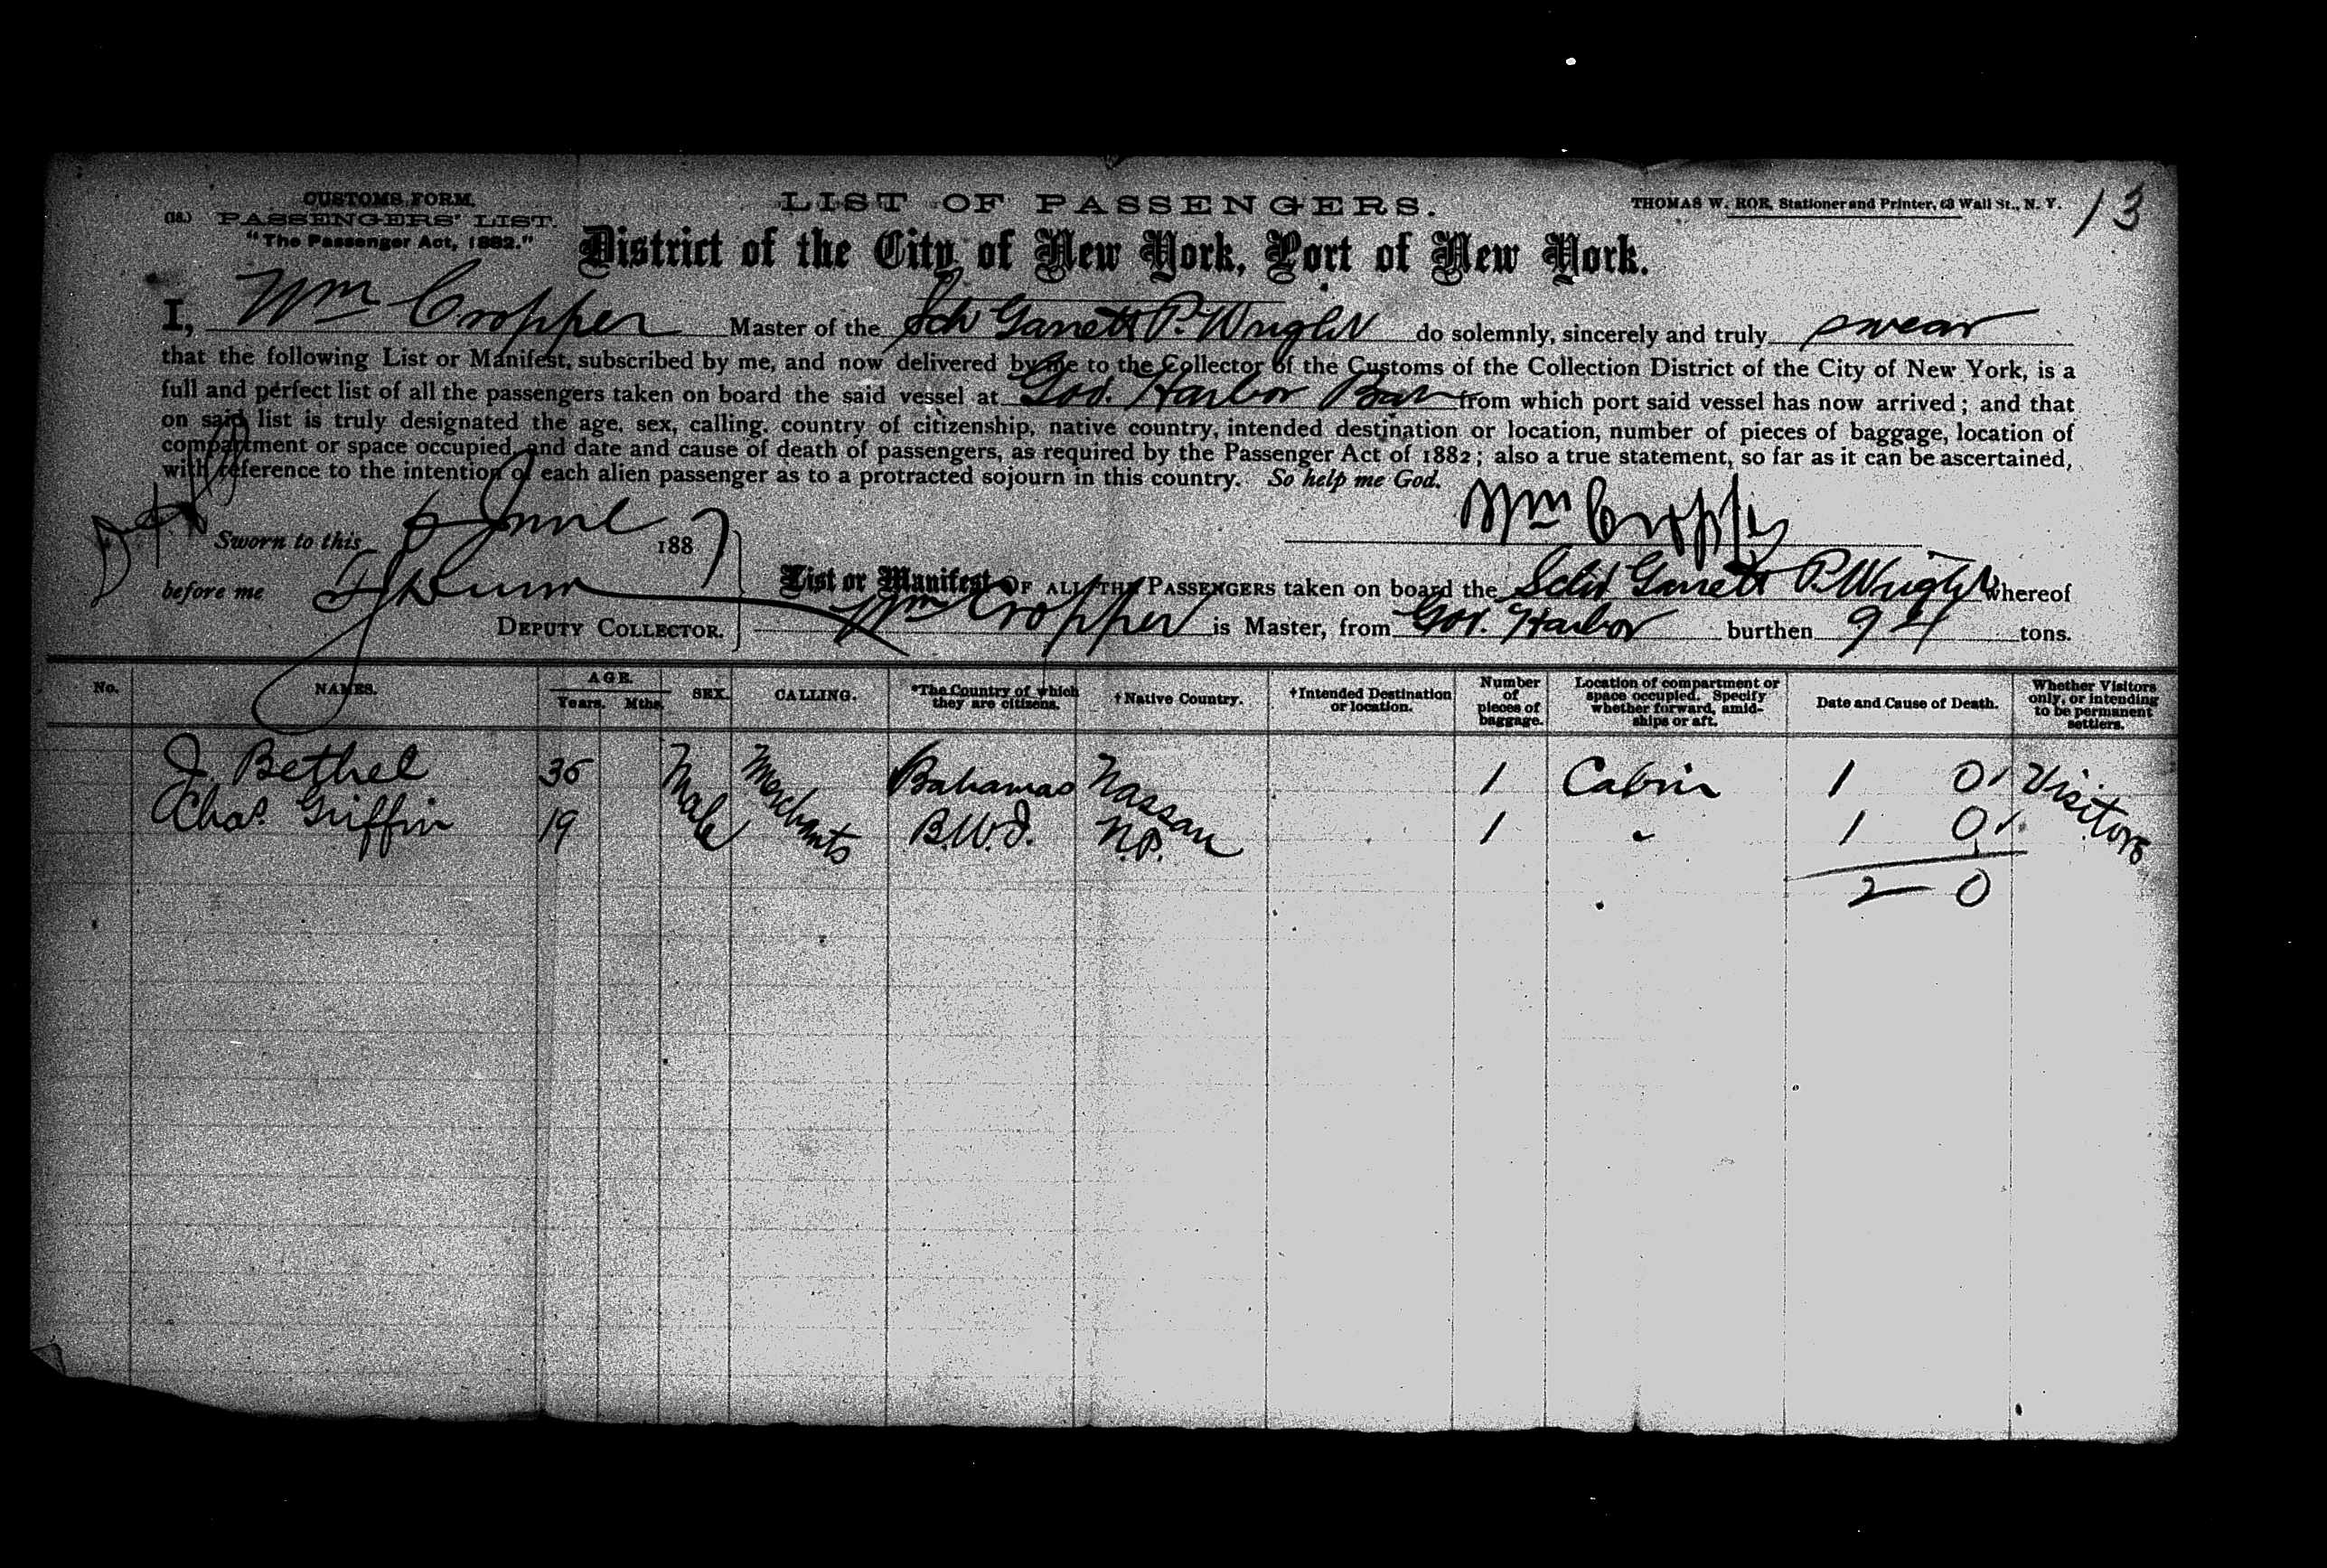 CUSTOMS FORM.
(18.) PASSENGERS' LIST.
"The Passenger Act, 1882."
LIST OF PASSENGERS.
THOMAS W. ROE, Stationer and Printer, 63 Wall St., N. Y.
13
District of the City of New York, Port of New York.
I, Wm Cropper Master of the Sch Garrett P. Wright do solemnly, sincerely and truly swear
that the following List or Manifest, subscribed by me, and now delivered by me to the Collector of the Customs of the Collection District of the City of New York, is a
full and perfect list of all the passengers taken on board the said vessel at Gov. Harbor Bah from which port said vessel has now arrived; and that
on said list is truly designated the age, sex, calling, country of citizenship, native country, intended destination or location, number of pieces of baggage, location of
compartment or space occupied, and date and cause of death of passengers, as required by the Passenger Act of 1882; also a true statement, so far as it can be ascertained,
with reference to the intention of each alien passenger as to a protracted sojourn in this country. So help me God.
Wm Cropper
Sworn to this 6 June 1887
before me
DEPUTY COLLECTOR.
List or Manifest OF ALL THE PASSENGERS taken on board the Schr Garrett P. Wright whereof
Wm Cropper is Master, from Gov. Harbor burthen 94 tons.
No. NAMES. AGE. Years. Mths. SEX. CALLING. *The Country of which they are citizens. †Native Country. †Intended Destination or location. Number of pieces of baggage. Location of compartment or space occupied. Specify whether forward, amidships or aft. Date and Cause of Death. Whether Visitors only, or intending to be permanent settlers.
J. Bethel 36 Male Merchants Bahamas Nassau 1 Cabin 1 0 Visitors
Chas. Griffin 19 B.W.I. N.P. 1 " 1 0
2 0